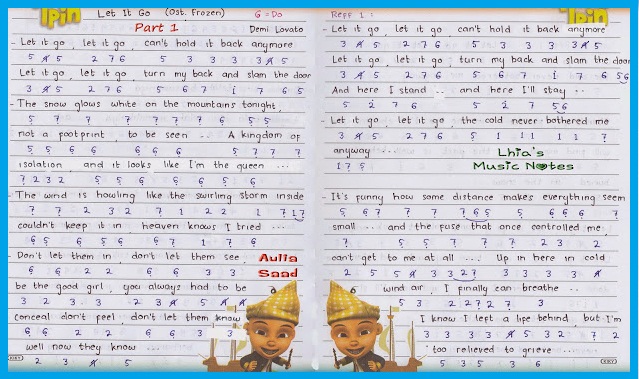 Ipin
Let It Go (Ost. Frozen) G = Do
Part 1 Demi Lovato
- Let it go, let it go, can't hold it back anymore
5 4̸ 5 2 7 6 5 3 3 3 3 4̸ 5
Let it go, let it go, turn my back and slam the door
3 4̸ 5 2 7 6 5 6 7 i 7 6 5
- The snow glows white on the mountains tonight,
5 7 7 7 7 7 7 6 5 5
not a footprint, to be seen .. A kingdom of
5 5 6 6 6 6 6 5 7 7 7
isolation, and it looks like I'm the queen ...
7 2 3 2 5 5 6 6 6 6 5 6
- The wind is howling like the swirling storm inside
7 7 2 3 2 7 1 2 2 1 7 1 7
couldn't keep it in heaven knows I tried ...
6 5 6 5 6 6 7 1 7 6
- Don't let them in, don't let them see, Aulia
6 6 2 2 6 6 3 3 Saad
be the good girl, you always had to be
3 2 3 3 2 3 4̸ 5 4̸ 4̸
conceal don't feel, don't let them know
6 6 2 2 6 6 3 3
well now they know ...
2 3 4̸ 5
KIKY
Reff 1 :
Ipin
- Let it go, let it go, can't hold it back anymore
3 4̸ 5 2 7 6 5 3 3 3 3 4̸ 5
Let it go, let it go, turn my back and slam the door
3 4̸ 5 2 7 6 5 6 7 i 7 6 5 6
And here I stand .. and here I'll stay ..
5 2 7 6 5 2 7 5 6
- Let it go, let it go, the cold never bothered me
3 4̸ 5 2 7 6 5 1 1 1 1 1 7
anyway ... Lhia's
1 7 5 Music Notes
- It's funny how some distance makes everything seem
5 6 7 7 7 7 6 5 5 6 6 6 7
small ... and the fuse that once controlled me,
7 5 5 7 7 7 2 3 2
can't get to me at all ... Up in here in cold
2 5 5 4̸ 3 3 2 7 3 3 3 3 4̸
wind air, I finally can breathe ..
5 3 2 2 7 2 7 3
I know I left a life behind, but I'm
3 3 3 3 4̸ 5 3 2 7 2
too relieved to grieve ...
5 3 5 3 6
KIKY